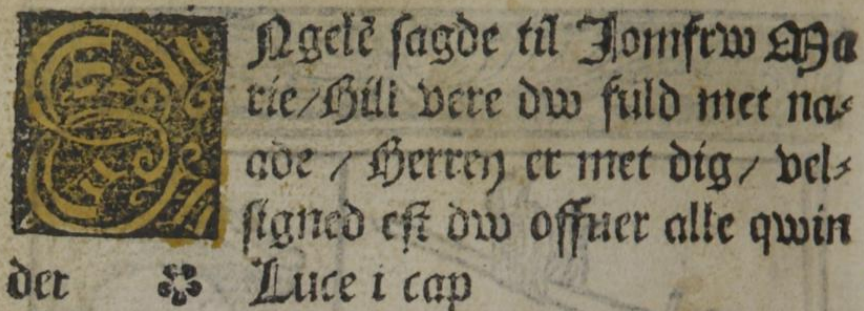 ENgelẽ sagde til Jomfrw Ma
rie/Hill vere dw fuld met na⸗
ade / Herren er met dig/ vel⸗
signed est dw offuer alle qwin
der ✿ Luce i cap